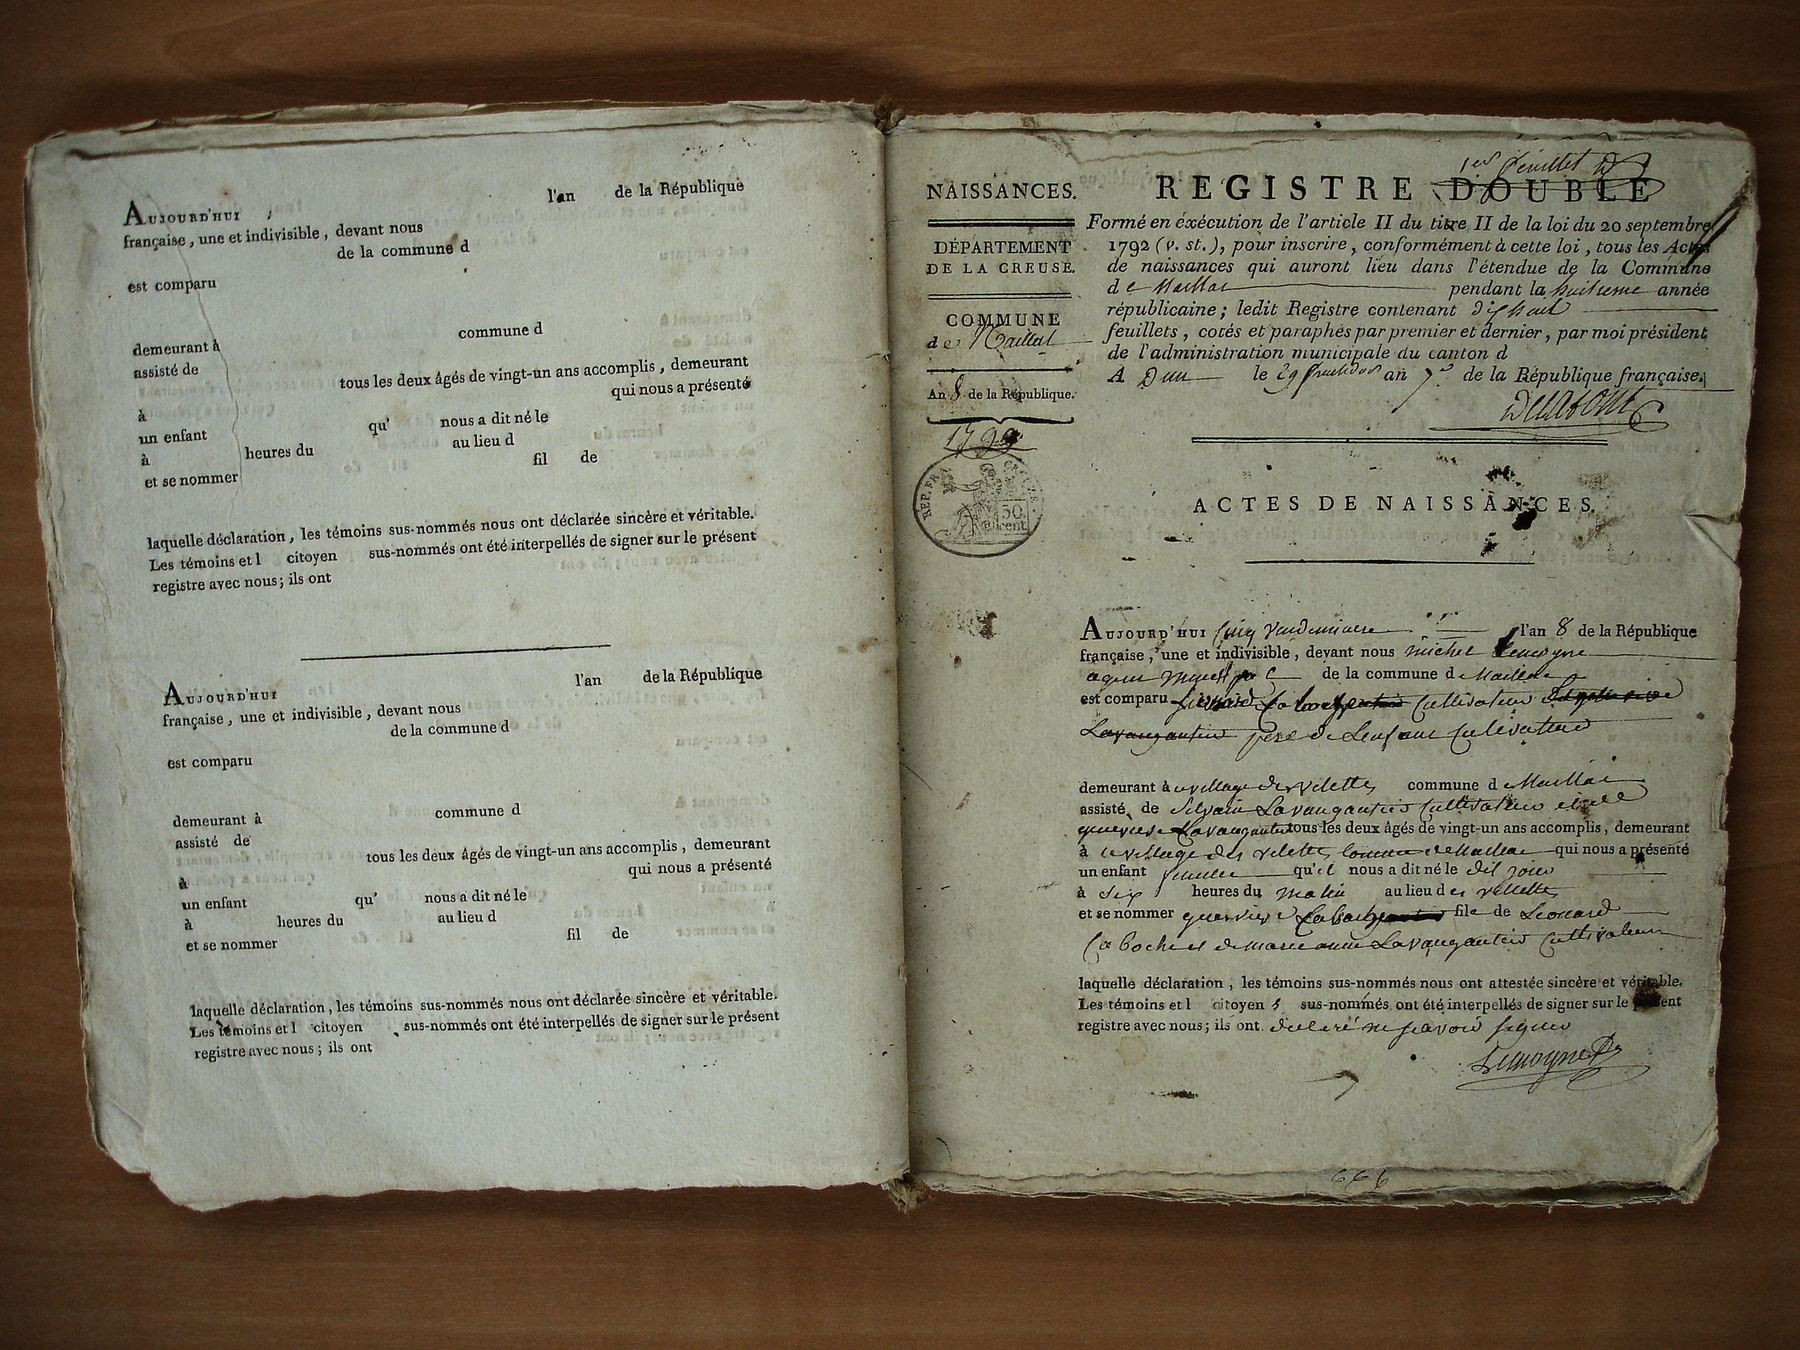 AUJOURD'HUI l'an de la République
française, une et indivisible, devant nous
de la commune d
est comparu
commune d
demeurant à
assisté de
tous les deux âgés de vingt-un ans accomplis, demeurant
à qui nous a présenté
un enfant qu' nous a dit né le
à heures du au lieu d
et se nommer fil de
laquelle déclaration, les témoins sus-nommés nous ont déclarée sincère et véritable.
Les témoins et l citoyen sus-nommés ont été interpellés de signer sur le présent
registre avec nous; ils ont
AUJOURD'HUI l'an de la République
française, une et indivisible, devant nous
de la commune d
est comparu
demeurant à commune d
assisté de
tous les deux âgés de vingt-un ans accomplis, demeurant
à qui nous a présenté
un enfant qu' nous a dit né le
à heures du au lieu d
et se nommer fil de
laquelle déclaration, les témoins sus-nommés nous ont déclarée sincère et véritable.
Les témoins et l citoyen sus-nommés ont été interpellés de signer sur le présent
registre avec nous; ils ont
1er feuillet
NAISSANCES.
DÉPARTEMENT
DE LA CREUSE.
COMMUNE
de Maillat
An 8 de la République.
1799
REP. FRA
50
cent
REGISTRE DOUBLE
Formé en éxécution de l'article II du titre II de la loi du 20 septembre
1792 (v. st.), pour inscrire, conformément à cette loi, tous les Actes
de naissances qui auront lieu dans l'étendue de la Commune
de Maillat pendant la huitieme année
républicaine; ledit Registre contenant
feuillets, cotés et paraphés par premier et dernier, par moi président
de l'administration municipale du canton d
A Dun le 29 fructidor an 7e de la République française.
ACTES DE NAISSANCES.
AUJOURD'HUI cinq Vendemiaire l'an 8 de la République
française, une et indivisible, devant nous michel Lemoyne
agent de la commune de Maillat
est comparu cultivateur
Lavaugautier pere de Lenfant cultivateur
demeurant à village des vilettes commune de Maillat
assisté de Silvain Lavaugautier cultivateur
Lavaugautier tous les deux âgés de vingt-un ans accomplis, demeurant
à village des vilettes commune de Maillat qui nous a présenté
un enfant femelle qu'il nous a dit né le dit jour
à six heures du matin au lieu des villettes
et se nommer file de Leonard
La boche et de marie anne Lavaugautier cultivateur
laquelle déclaration, les témoins sus-nommés nous ont attestée sincère et véritable.
Les témoins et l citoyen s sus-nommés ont été interpellés de signer sur le présent
registre avec nous; ils ont declaré ne savoir signer
Lemoyne
666